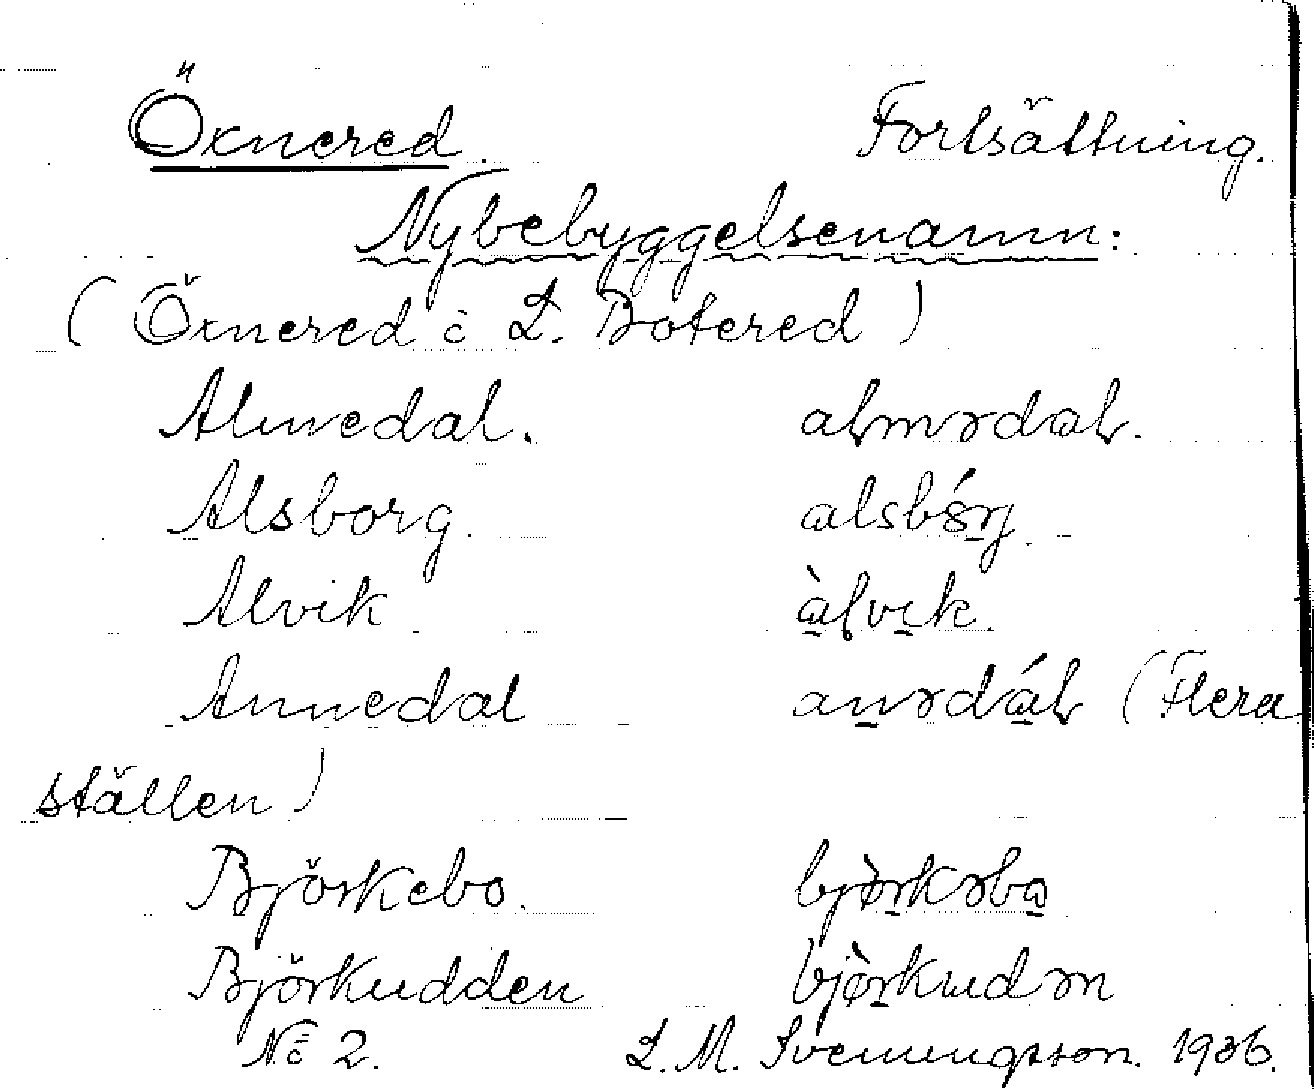 Öxnered. Fortsättning.
Nybebyggelsenamn:
(Öxnered o L. Botered)
Almedal. almədal.
Alsborg. alsbórj.
Alvik àlvik.
Annedal anədál (Flera
ställen)
Björkebo. bjòrkəbo
Björkudden bjòrkudən
No 2. L. M. Svenungsson. 1936.